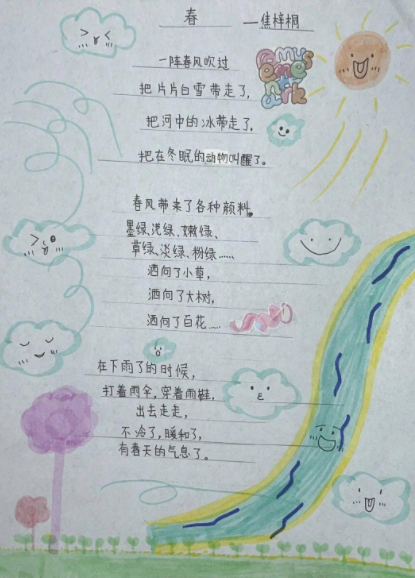 春 —焦梓桐
一阵春风吹过
把片片白雪带走了,
把河中的冰带走了,
把在冬眠的动物叫醒了。
春风带来了各种颜料。
墨绿、浅绿、嫩绿、
草绿、淡绿、粉绿……
洒向了小草,
洒向了大树,
洒向了百花……
在下雨了的时候,
打着雨伞,穿着雨鞋,
出去走走,
不冷了,暖和了,
有春天的气息了。